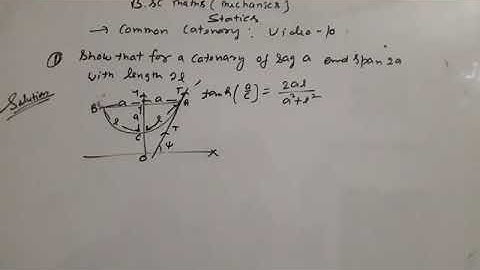 B.Sc Maths (Mechanics)
Statics
→ Common Catenary: Video-10
① Show that for a catenary of sag a and span 2a
with length 2l
tanh(a/c) = 2al / a²+l²
Solution
B a a A
a
l l
C
T
ψ
O X